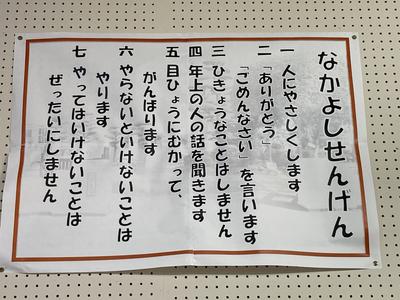 なかよしせんげん
一 人にやさしくします
二 「ありがとう」
「ごめんなさい」を言います
三 ひきょうなことはしません
四 年上の人の話を聞きます
五 目ひょうにむかって、
がんばります
六 やらないといけないことは
やります
七 やってはいけないことは
ぜったいにしません